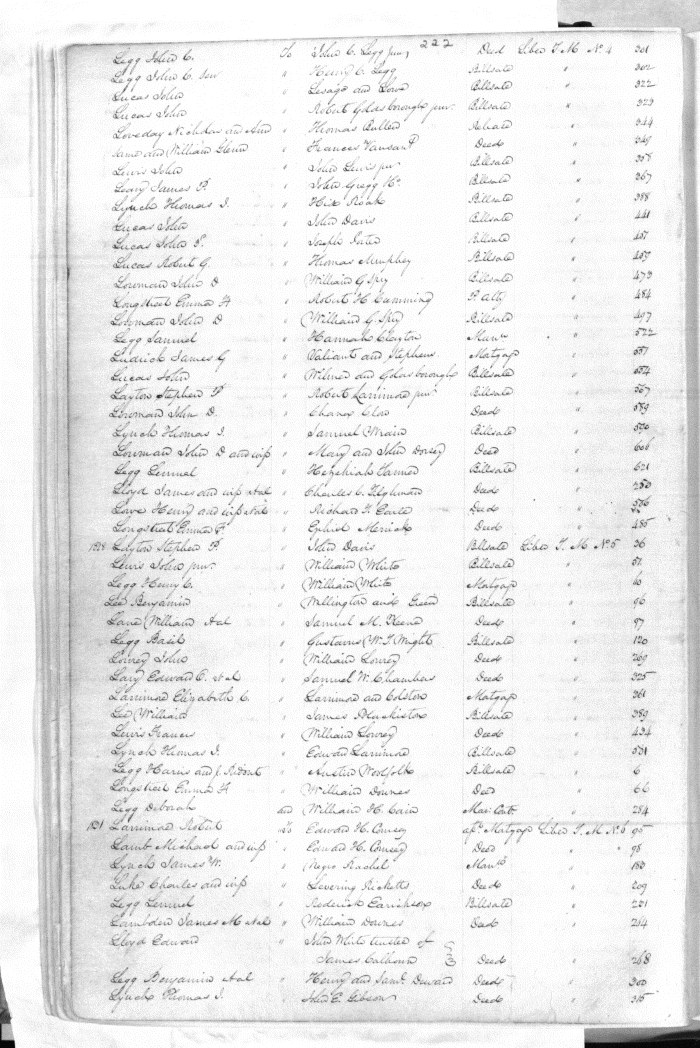 222
Legg John C. To John C. Legg junr Deed Liber T M No 4 301
Legg John C. Senr " Henry C. Legg Billsale " 302
Lucas John " Lesage and Lowe Billsale 322
Lucas John " Robert Goldsborough junr. Billsale " 323
Loveday Nicholas and Ann " Thomas Bullen Release 344
Same and William Glenn " Frances Vansant Deed " 349
Lewis John " John Lewis jr Billsale "
Leary James P. " John Gregg Billsale " 367
Lynch Thomas J. " Billsale " 388
Lucas John " John Davis Billsale " 441
Lucas John " Joseph Billsale " 457
Lucas Robert G. " Thomas Murphey Billsale " 459
Lowman John D " William G Spry Billsale " 473
Longstreet Emma H " Robert H Cumming P. Atty " 484
Lowman John D " William G. Spry Billsale " 497
Legg Samuel " Hannah Clayton Manu " 522
Ludrick James G " Valiant and Stephens Mortgage " 551
Lucas John " Wilmer and Goldsborough Billsale " 554
Layton Stephen P " Robert Larrimore junr Billsale " 567
Lowman John D. " Deed " 589
Lynch Thomas J. " Samuel Billsale " 590
Lowman John D and wife " Mary and John Dorsey Deed " 606
Legg Lemuel " Hezekiah Billsale " 621
Lloyd James and wife & al " Charles C. Tilghman Deed "
Love Henry and wife & al " Richard T. Earle Deed " 556
Longstreet Emma F. " Ephid Merrick Deed " 485
1828 Layton Stephen P. " John Davis Billsale Liber T. M No 5 36
Lewis John junr. " William White Billsale " 51
Legg Henry C. " William White Mortgage "
Lee Benjamin " Wellington and Green Billsale " 96
Lane William & al " Samuel M. Keene Deed " 97
Legg Basil " Gustavus W. T. Wright Billsale " 120
Lowrey John " William Lowrey Deed " 269
Lary Edward C. et al " Samuel W. Chambers Deed " 325
Larrimore Elizabeth C. " Larrimore and Colston Mortgage " 361
Lee William " James Mackiston Billsale " 389
Lewis Francis " William Lowrey Deed " 434
Lynch Thomas J. " Edward Larrimore Billsale " 531
Legg Harris and J. Ridout " Austin Woolfolk Billsale " 6
Longstreet Emma H " William Downes Deed " 66
Legg Deborah and William H. Cain Mar. Cont. " 284
1831 Larrimore Robert To Edward H. Comsey Mortgage Liber T. M No 6 95
Lamb Michael and wife " Edward H. Comsey Deed " 98
Lynch James W. " Negro Rachel Manu " 183
Luke Charles and wife " Levering Ricketts Deed " 209
Legg Lemuel " Roderick Earickson Billsale " 221
Lambden James M & al " William Downes Deed " 214
Lloyd Edward " John White trustee of
James Calhoun Deed " 268
Legg Benjamin & al " Henry and Saml. Deward Deed " 300
Lynch Thomas J. " John E. Gibson Deed " 315